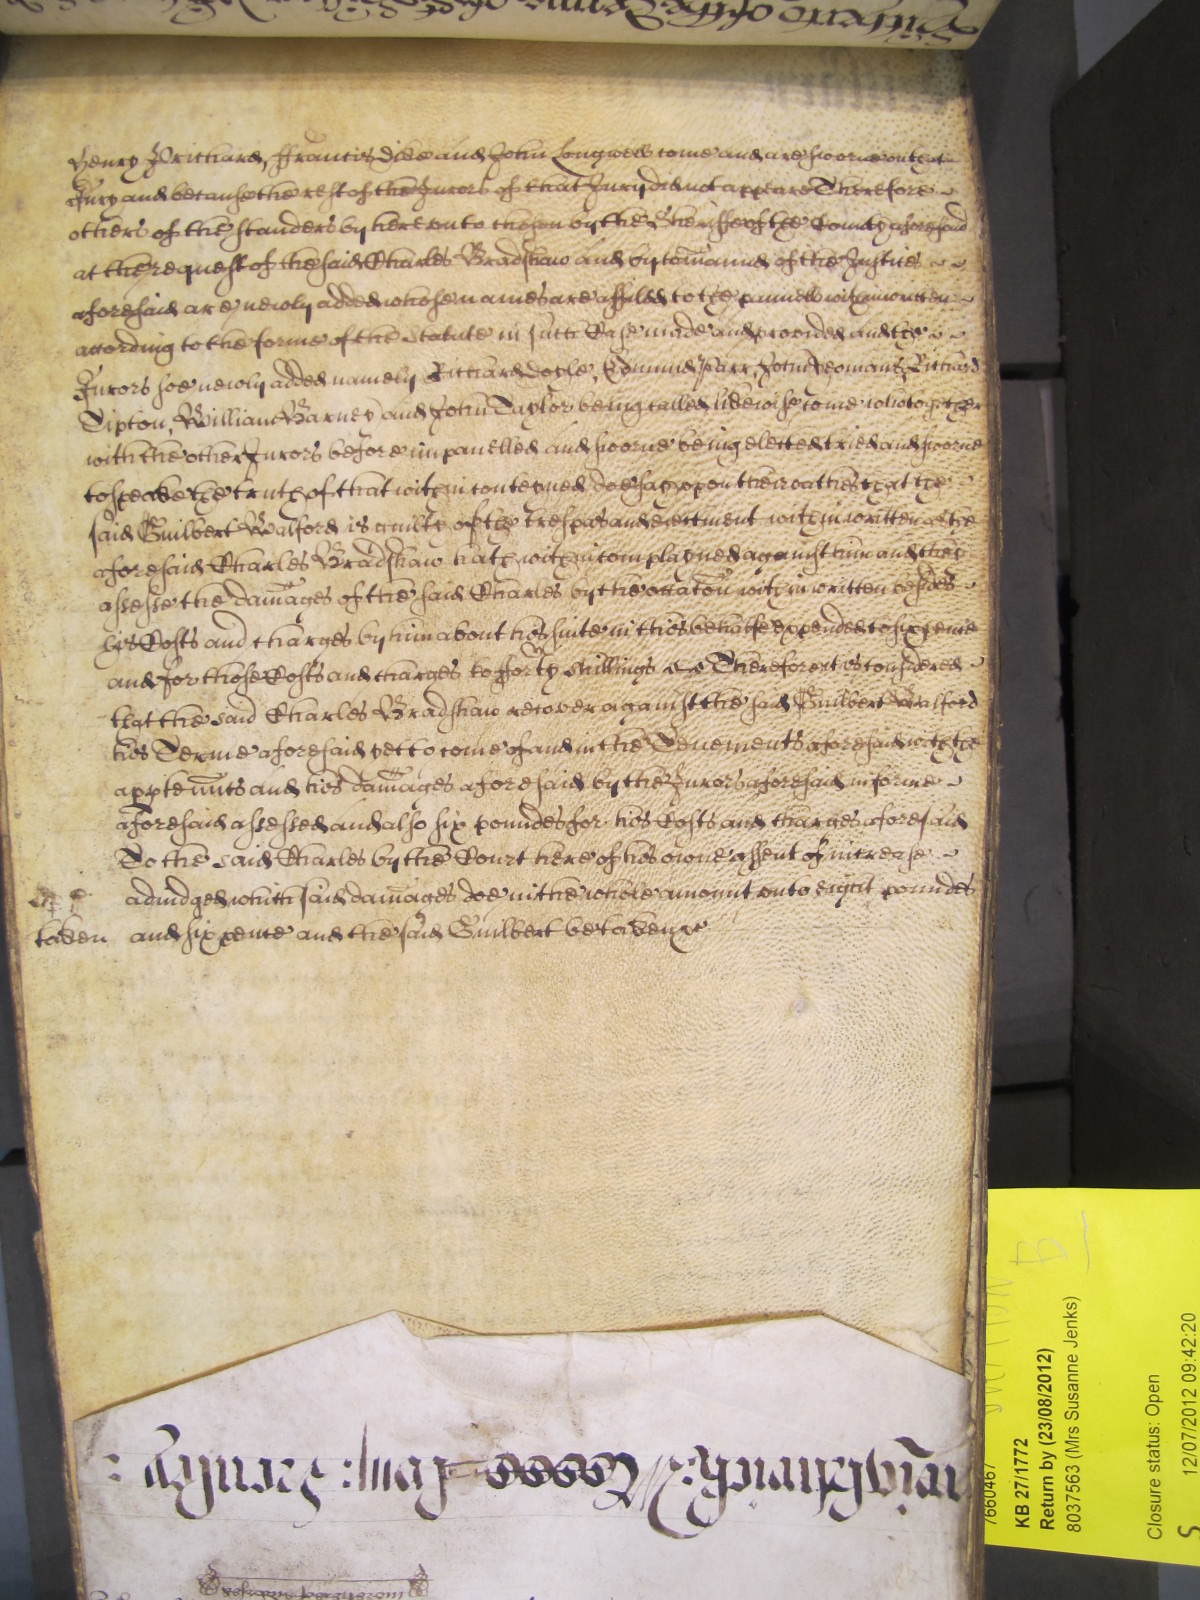 Henry Prichard, ffrancis Dide and John Longwell come and are sworne on that
Jury and because the rest of the Jurors of that Jury did not appeare Therefore
others of the standers by hereunto chosen by the Sheriffe of the County aforesaid
at the request of the said Charles Bradshaw and by comand of the Justices
aforesaid are newly added whose names are affiled to the pannell within written
according to the forme of the Statute in such Case made and provided and the
Jurors soe newly added namely Richard Doele, Edmund Parr, John Yeomans, Richard
Tipton, William Barney and John Taylor being called likewise come who together
with the other Jurors before impanelled and sworne being elected tried and sworne
to speake the truth of that within conteyned doe say upon their oathes that the
said Guilbert Walford is guilty of the trespas and eiectment within written as the
aforesaid Charles Bradshaw hath within complayned against him and they
assesse the damages of the said Charles by the occacon within written besides
his Costs and charges by him about his suite in this behalfe expended to sixpence
and for those Costs and charges to fforty shillings Therefore it is considered
that the said Charles Bradshaw recover against the said Guilbert Walford
his Terme aforesaid yet to come of and in the Tenements aforesaid with the
apptennts and his damages aforesaid by the Jurors aforesaid in forme
aforesaid assessed and also six poundes for his Costs and charges aforesaid
To the said Charles by the Court here of his owne assent of increase
adiudged which said damages doe in the whole amount unto eight poundes
taken and sixpence and the said Guilbert be taken &c
7660467
KB 27/1772
Return by (23/08/2012)
8037563 (Mrs Susanne Jenks)
Closure status: Open
12/07/2012 09:42:20